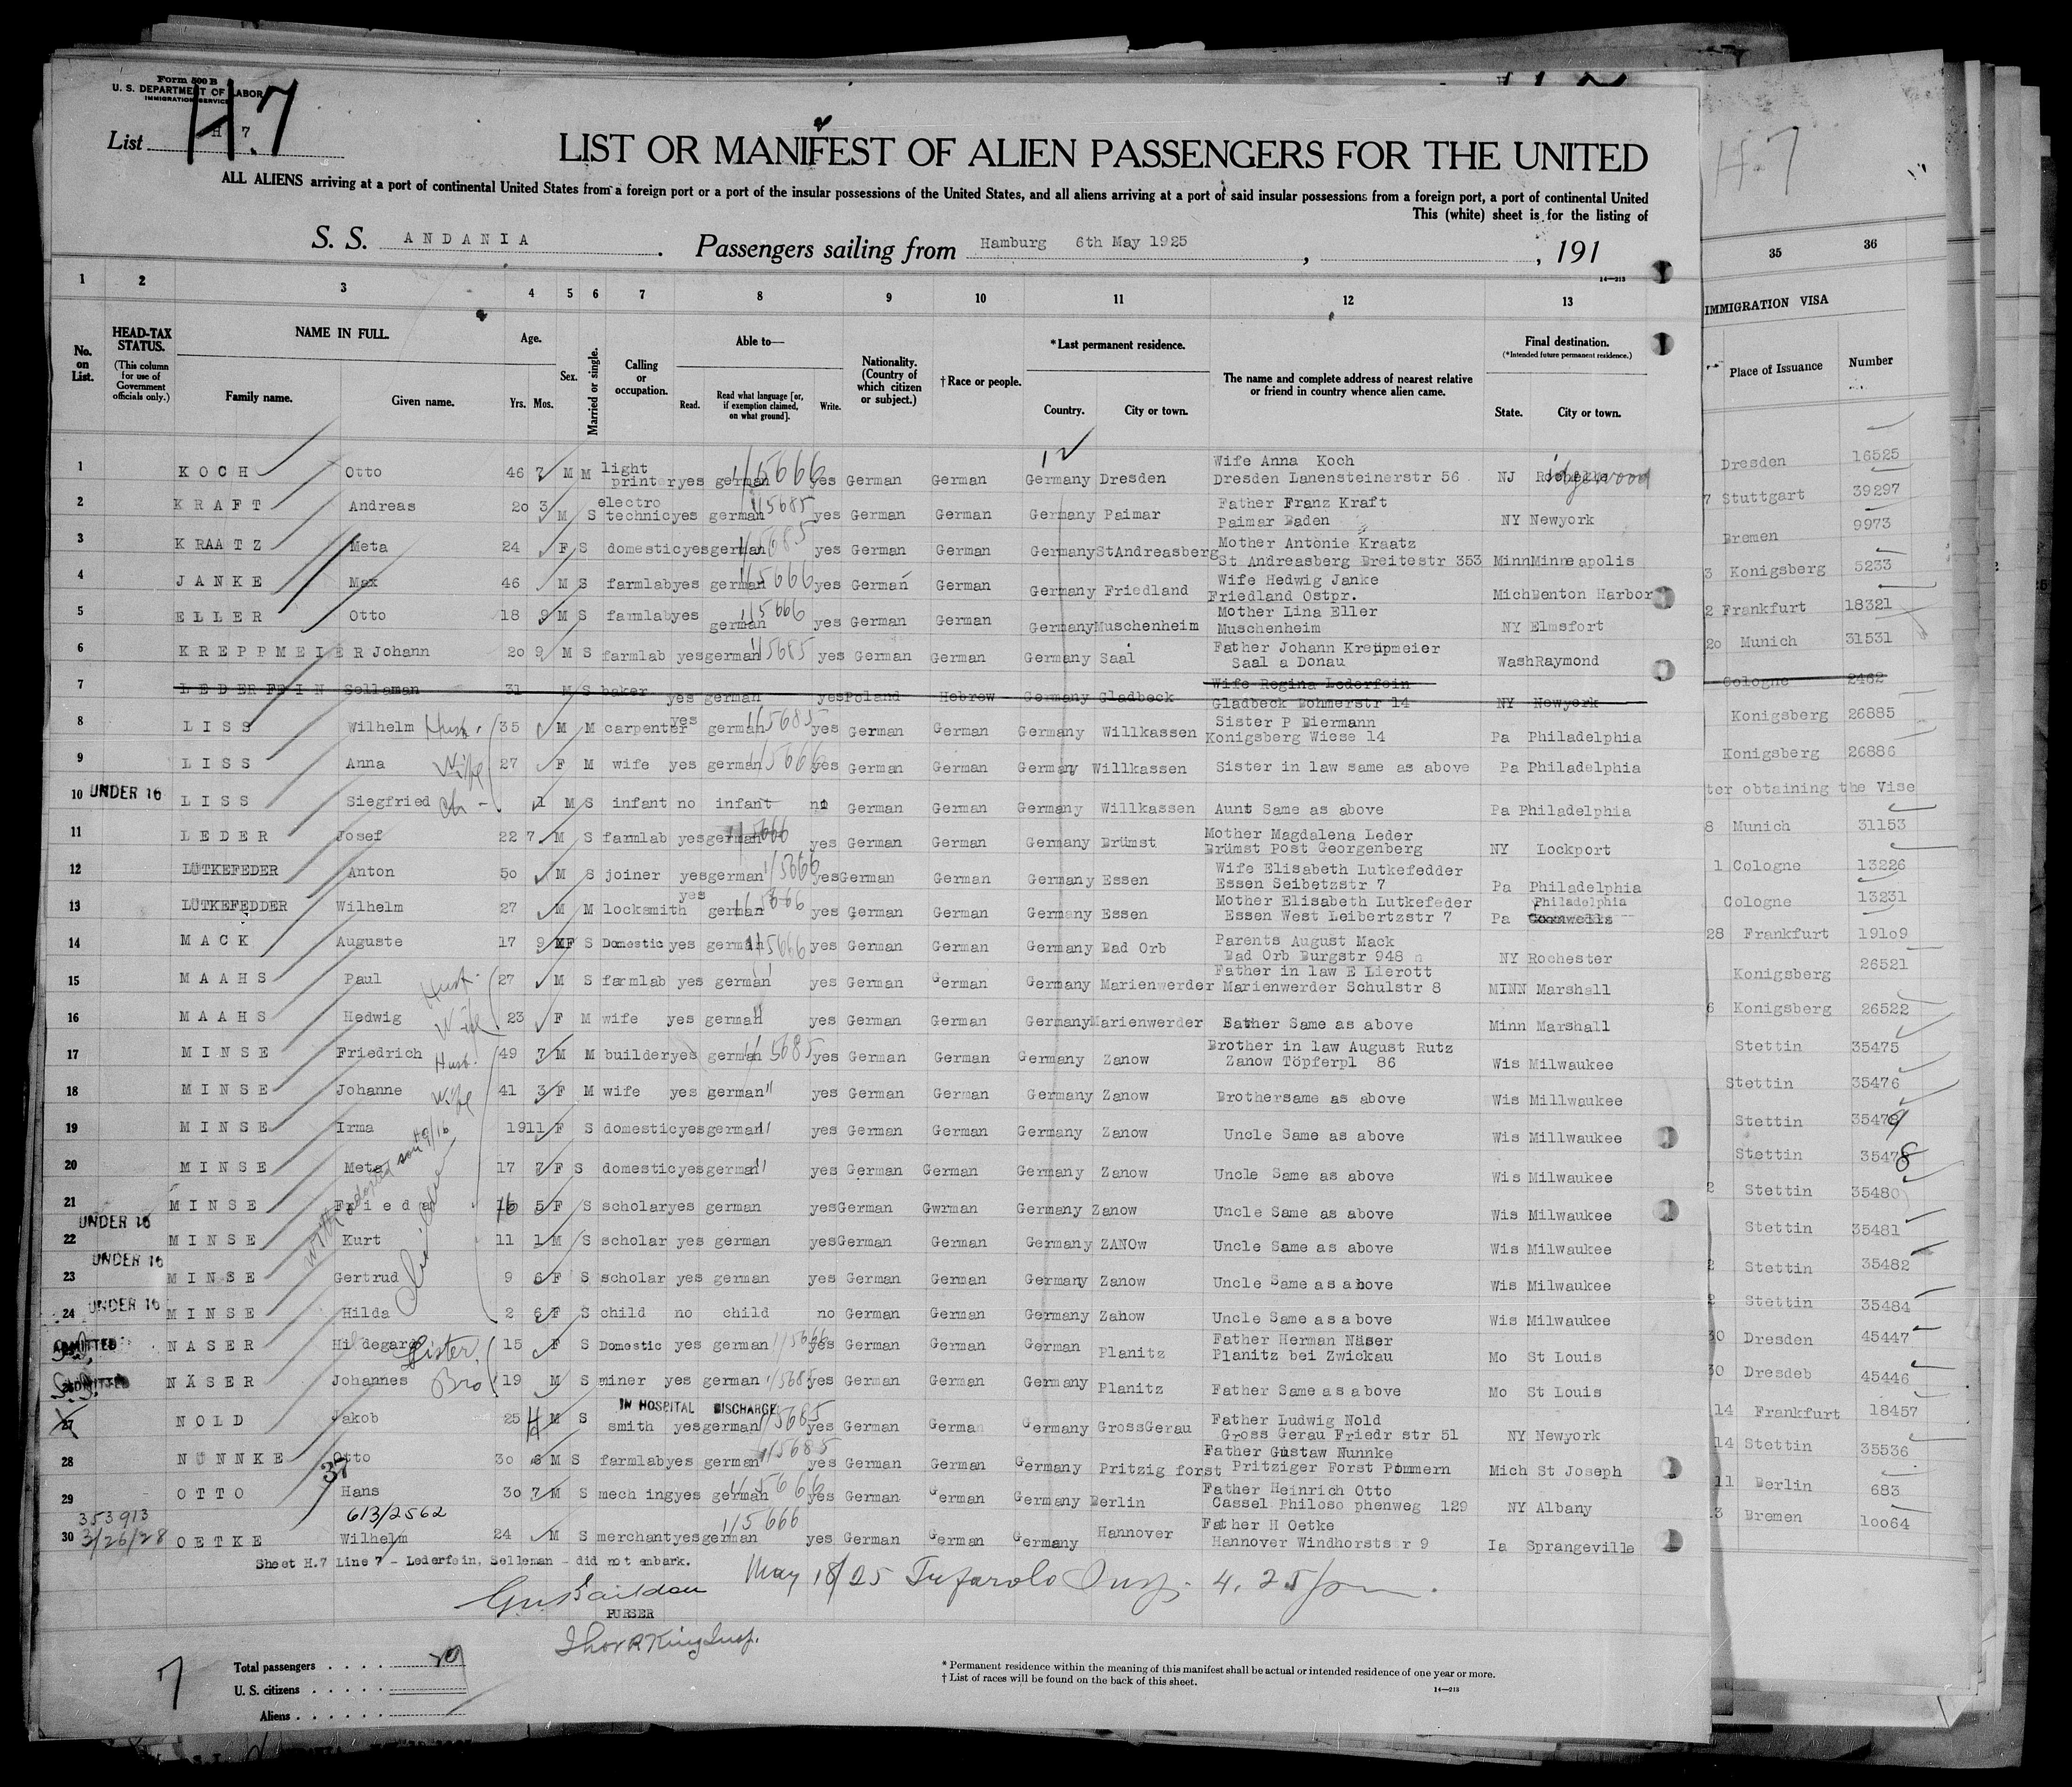 Form 500 B
U. S. DEPARTMENT OF LABOR
IMMIGRATION SERVICE
List H 7
H.7
LIST OR MANIFEST OF ALIEN PASSENGERS FOR THE UNITED
ALL ALIENS arriving at a port of continental United States from a foreign port or a port of the insular possessions of the United States, and all aliens arriving at a port of said insular possessions from a foreign port, a port of continental United
This (white) sheet is for the listing of
S. S. ANDANIA . Passengers sailing from Hamburg 6th May 1925 , , 191
14—213
H.7
1 2 3 4 5 6 7 8 9 10 11 12 13 35 36
No. on List.
HEAD-TAX STATUS.
(This column for use of Government officials only.)
NAME IN FULL.
Family name. Given name.
Age.
Yrs. Mos.
Sex.
Married or single.
Calling or occupation.
Able to—
Read. Read what language [or, if exemption claimed, on what ground]. Write.
Nationality. (Country of which citizen or subject.)
†Race or people.
*Last permanent residence.
Country. City or town.
The name and complete address of nearest relative or friend in country whence alien came.
Final destination.
(*Intended future permanent residence.)
State. City or town.
IMMIGRATION VISA
Place of Issuance Number
1 KOCH Otto 46 7 M M light printer yes german 115666 yes German German Germany Dresden Wife Anna Koch Dresden Lanensteinerstr 56 NJ Dresden 16525
2 KRAFT Andreas 20 3 M S electro technic yes german 115685 yes German German Germany Paimar Father Franz Kraft Paimar Baden NY Newyork 7 Stuttgart 39297
3 KRAATZ Meta 24 F S domestic yes german yes German German Germany StAndreasberg Mother Antonie Kraatz St Andreasberg Breitestr 353 Minn Minneapolis Bremen 9973
4 JANKE Max 46 M S farmlab yes german 115666 yes German German Germany Friedland Wife Hedwig Janke Friedland Ostpr. Mich Benton Harbor 3 Konigsberg 5233
5 ELLER Otto 18 9 M S farmlab yes german 115666 yes German German Germany Muschenheim Mother Lina Eller Muschenheim NY Elmsfort 2 Frankfurt 18321
6 KREPPMEIER Johann 20 9 M S farmlab yes german 115685 yes German German Germany Saal Father Johann Kreupmeier Saal a Donau Wash Raymond 20 Munich 31531
7 LEDERFEIN Selleman 31 M S baker yes german yes Poland Hebrew Germany Gladbeck Wife Regina Lederfein Gladbeck Bohmerstr 14 NY Newyork Cologne 2462
8 LISS Wilhelm Husb. 35 M M carpenter yes german 115685 yes German German Germany Willkassen Sister P Biermann Konigsberg Wiese 14 Pa Philadelphia Konigsberg 26885
9 LISS Anna Wife 27 F M wife yes german 115666 yes German German Germany Willkassen Sister in law same as above Pa Philadelphia Konigsberg 26886
10 UNDER 16 LISS Siegfried ch - 1 M S infant no infant no German German Germany Willkassen Aunt Same as above Pa Philadelphia ter obtaining the Vise
11 LEDER Josef 22 7 M S farmlab yes german 115666 yes German German Germany Brümst Mother Magdalena Leder Brümst Post Georgenberg NY Lockport 8 Munich 31153
12 LÜTKEFEDER Anton 50 M S joiner yes german 115666 yes German German Germany Essen Wife Elisabeth Lutkefedder Essen Seibetzstr 7 Pa Philadelphia 1 Cologne 13226
13 LÜTKEFEDDER Wilhelm 27 M M locksmith yes german 115666 yes German German Germany Essen Mother Elisabeth Lutkefeder Essen West Leibertzstr 7 Pa Philadelphia Cornwells Cologne 13231
14 MACK Auguste 17 9 MF S Domestic yes german 115666 yes German German Germany Bad Orb Parents August Mack Bad Orb Burgstr 948 NY Rochester 28 Frankfurt 19109
15 MAAHS Paul Husb. 27 M S farmlab yes german yes German German Germany Marienwerder Father in law E Lierott Marienwerder Schulstr 8 MINN Marshall Konigsberg 26521
16 MAAHS Hedwig Wife 23 F M wife yes german " yes German German Germany Marienwerder Father Same as above Minn Marshall 6 Konigsberg 26522
17 MINSE Friedrich Husb. 49 7 M M builder yes german 115685 yes German German Germany Zanow Brother in law August Rutz Zanow Töpferpl 86 Wis Milwaukee Stettin 35475
18 MINSE Johanne Wife 41 3 F M wife yes german " yes German German Germany Zanow Brothersame as above Wis Millwaukee Stettin 35476
19 MINSE Irma 19 11 F S domestic yes german " yes German German Germany Zanow Uncle Same as above Wis Millwaukee Stettin 35479
20 MINSE Meta 17 7 F S domestic yes german " yes German German Germany Zanow Uncle Same as above Wis Milwaukee Stettin 35478
21 MINSE Frieda 16 5 F S scholar yes german yes German Gwrman Germany Zanow Uncle Same as above Wis Milwaukee 2 Stettin 35480
UNDER 16
22 MINSE Kurt 11 1 M S scholar yes german yes German German Germany ZANOw Uncle Same as above Wis Milwaukee Stettin 35481
UNDER 16
23 MINSE Gertrud 9 6 F S scholar yes german yes German German Germany Zanow Uncle Same as above Wis Milwaukee 2 Stettin 35482
UNDER 16
24 MINSE Hilda 2 6 F S child no child no German German Germany Zanow Uncle Same as above Wis Milwaukee 2 Stettin 35484
Children
ADMITTED NASER Hildegard Sister 15 F S Domestic yes german 115666 yes German German German Planitz Father Herman Näser Planitz bei Zwickau Mo St Louis 30 Dresden 45447
26 ADMITTED NÄSER Johannes Bro 19 M S miner yes german 115685 yes German German Germany Planitz Father Same as above Mo St Louis 30 Dresdeb 45446
IN HOSPITAL DISCHARGE
27 NOLD Jakob 25 4 M S smith yes german 115685 yes German German Germany GrossGerau Father Ludwig Nold Gross Gerau Friedr str 51 NY Newyork 14 Frankfurt 18457
28 NÜNNKE Otto 30 6 M S farmlab yes german 115685 yes German German Germany Pritzig forst Father Gustaw Nunnke Pritziger Forst Pommern Mich St Joseph 14 Stettin 35536
37
29 OTTO Hans 30 7 M S mech ing yes german 115666 yes German German Germany Berlin Father Heinrich Otto Cassel Philoso phenweg 129 NY Albany 11 Berlin 683
353913 613/2562
30 3/26/28 OETKE Wilhelm 24 M S merchant yes german 115666 yes German German Germany Hannover Father H Oetke Hannover Windhorsts r 9 Ia Sprangeville 13 Bremen 10064
Sheet H.7 Line 7 - Lederfein, Selleman - did not embark.
May 18/25 Insp. 4.25 pm.
PURSER
King Insp.
7
Total passengers . . . . .
U. S. citizens . . . . .
Aliens . . . . . .
* Permanent residence within the meaning of this manifest shall be actual or intended residence of one year or more.
† List of races will be found on the back of this sheet.
14—213